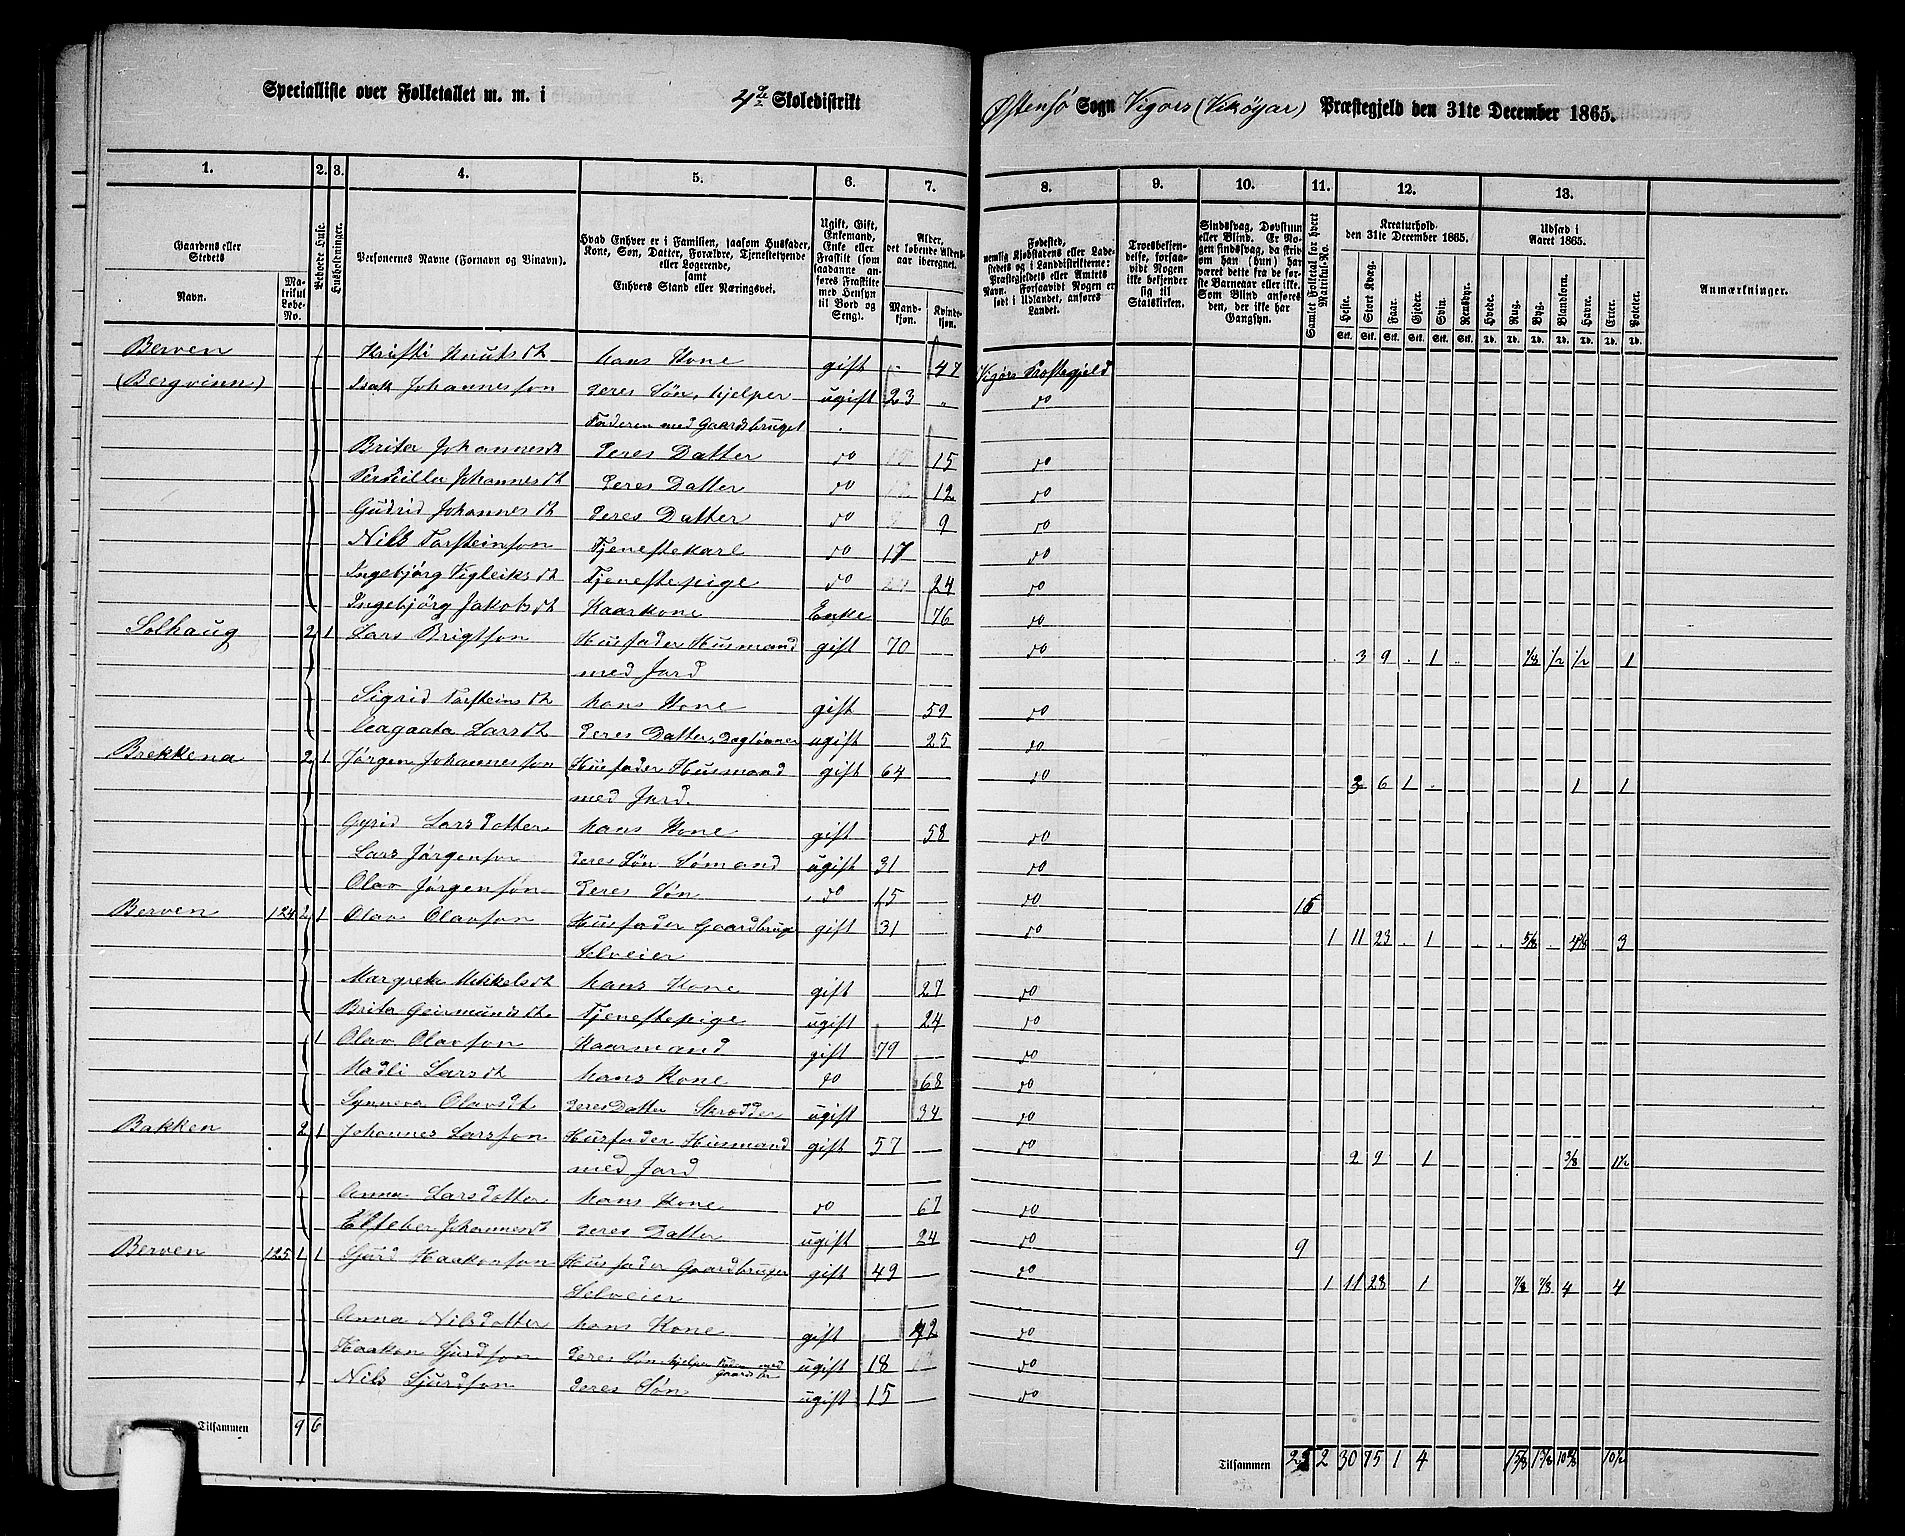 Specialliste over Folketallet m. m. i 4de Skoledistrikt Østensø Sogn Vigørs (Vikøyar) Præstegjeld den 31te December 1865.
1. 2. 3. 4. 5. 6. 7. 8. 9. 10. 11. 12. 13.
Gaardens eller Stedets
Navn.
Matrikul Løbe-No.
Beboede Huse.
Husholdninger.
Personernes Navne (Fornavn og Binavn).
Hvad Enhver er i Familien, saasom Husfader, Kone, Søn, Datter, Forældre, Tjenestetyende eller Logerende, samt Enhvers Stand eller Næringsvei.
Ugift, Gift, Enkemand, Enke eller Fraskilt (som saadanne anføres Fraskilte med Hensyn til Bord og Seng).
Alder, det løbende Alders-aar iberegnet.
Mandkjøn. Kvindekjøn.
Fødested,
Troesbekjendelse, forsaavidt Nogen ikke bekjender sig til Statskirken.
Sindssvag, Døvstum eller Blind.
Samlet Folketal for hvert Matrikul-No.
Kreaturhold den 31te December 1865.
Heste. Stort Kvæg. Faar. Gjeder. Svin. Rensdyr.
Udsæd i Aaret 1865.
Hvede. Rug. Byg. Blandkorn. Havre. Erter. Poteter.
Anmærkninger.
Berven Kristi Knutsdt hans Kone gift - 47 Vigørs Præstegjeld
(Bergvinn) Isak Johannesson deres Søn, hjelper ugift 23 do
Faderen med Gaardsbruget
Brita Johannesdt deres Datter do 15 do
Johannesdt deres Datter do 12 do
Gudrid Johannesdt deres Datter do 9 do
Nils Torsteinson Tjenestekarl do 17 do
Ingebjörg Vigleiksdt Tjenestepige do 24 do
Ingebjörg Jakobsdt Kaarkone Enke 76 do
Solhaug 2 1 Lars Brigtson Husfader Husmand gift 70 do 3 9 1 1/8 1/2 1/2 1
med Jord
Sigrid Torsteinsdt hans Kone gift 59 do
Larsdt deres Datter, Daglønner ugift 25 do
Brekkena 2 1 Jørgen Johannesson Husfader Husmand gift 64 do 3 6 1 1 1
med Jord.
Gyrid Larsdotter hans Kone gift 58 do
Lars Jørgenson deres Søn Sømand ugift 31 do
Olav Jørgensøn deres Søn do 15 do
Berven 124 2 1 Olav Olavson Husfader Gaardbruger gift 31 do 1 11 23 1 3
Selveier
Margreta Mikkelsdt hans Kone gift 27 do
Brita Geirmundsdt. Tjenestepige ugift 24 do
1 Olav Olavson Kaarmand gift 79 do
Madli Larsdt hans Kone do 68 do
Synneva Olavsdt deres Datter Skrædder ugift 34 do
Bakken 2 1 Johannes Larsson Husfader Husmand gift 57 do 2 9 1 3/8 1 1/2
med Jord
Anna Larsdotter hans Kone do 67 do
Johannesdt deres Datter ugift 24 do
Berven 125 1 1 Sjurd Haakonson Husfader Gaardbruger gift 49 do 9 1 11 28 1 7/8 7/8 4 4
Selveier
Anna Nilsdotter hans Kone gift 42 do
Haakon Sjurdson deres Søn hjelper ugift 18 do
Nils Sjurdson deres Søn ugift 15 do
Tilsammen 9 6
Tilsammen 2 30 75 1 4 10 1/2